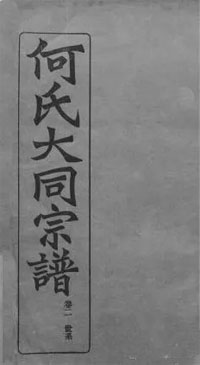 何氏大同宗譜
卷一 世系